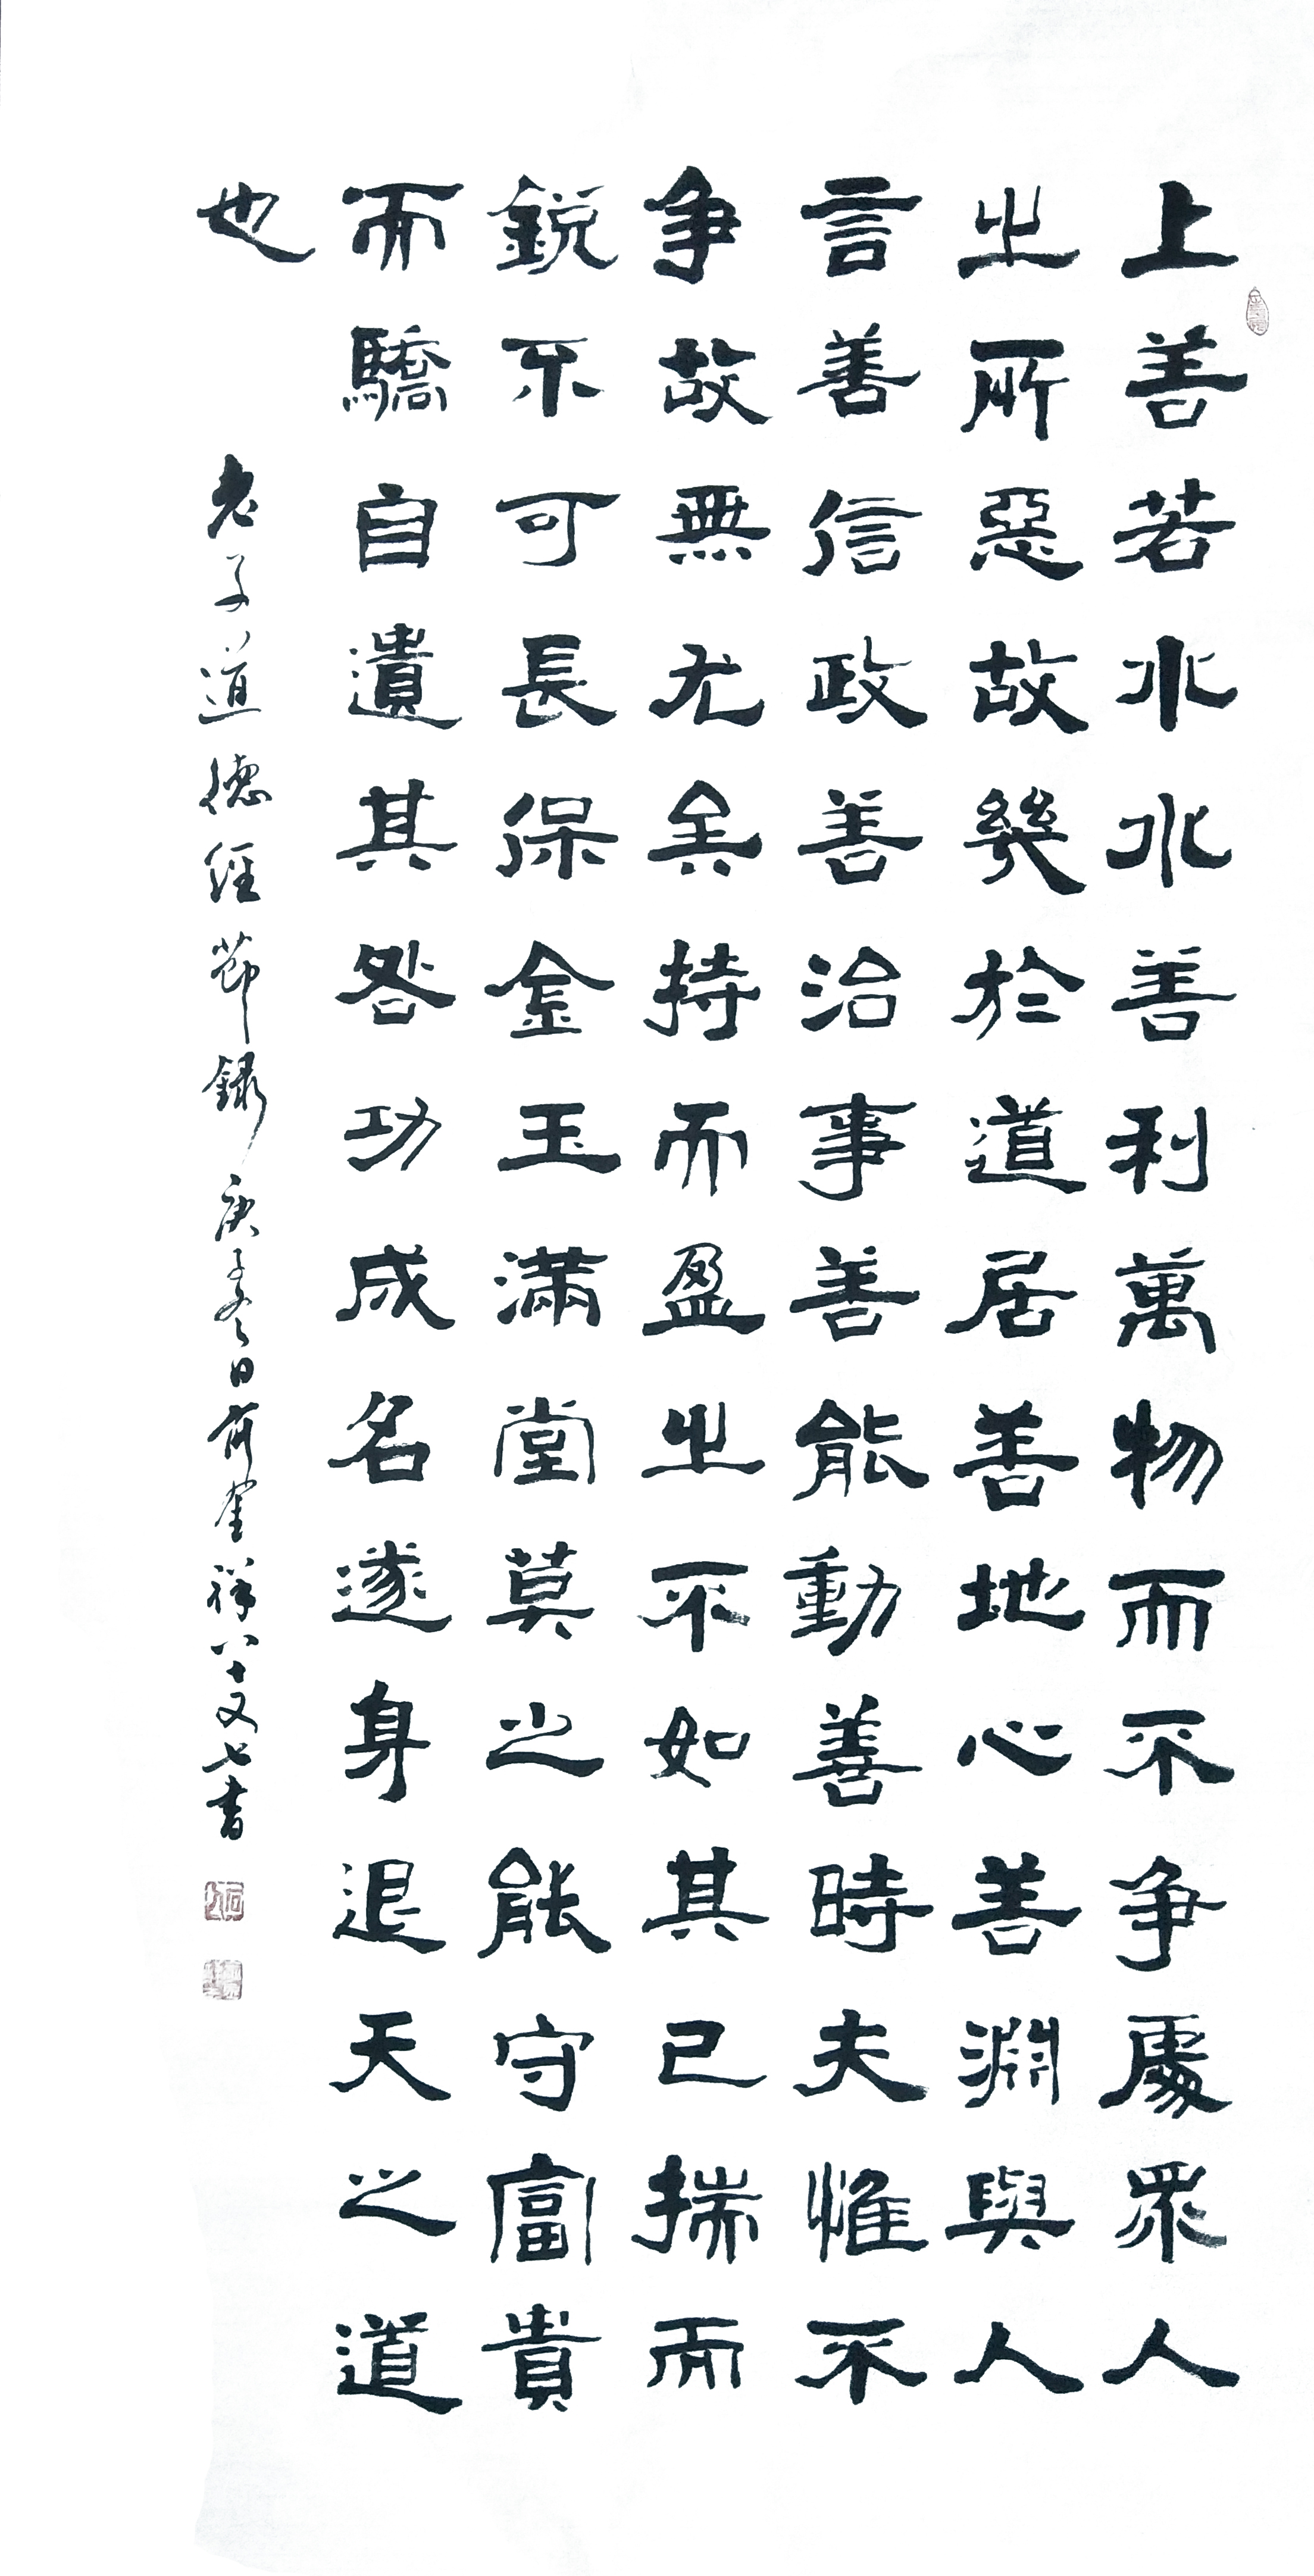 上善若水水善利萬物而不争處眾人
之所惡故幾於道居善地心善淵與人
言善信政善治事善能動善時夫惟不
争故無尤矣持而盈之不如其已揣而
鋭不可長保金玉滿堂莫之能守富貴
而驕自遺其咎功成名遂身退天之道
也
老子道德經節錄庚子冬日何奎祥八十又七書